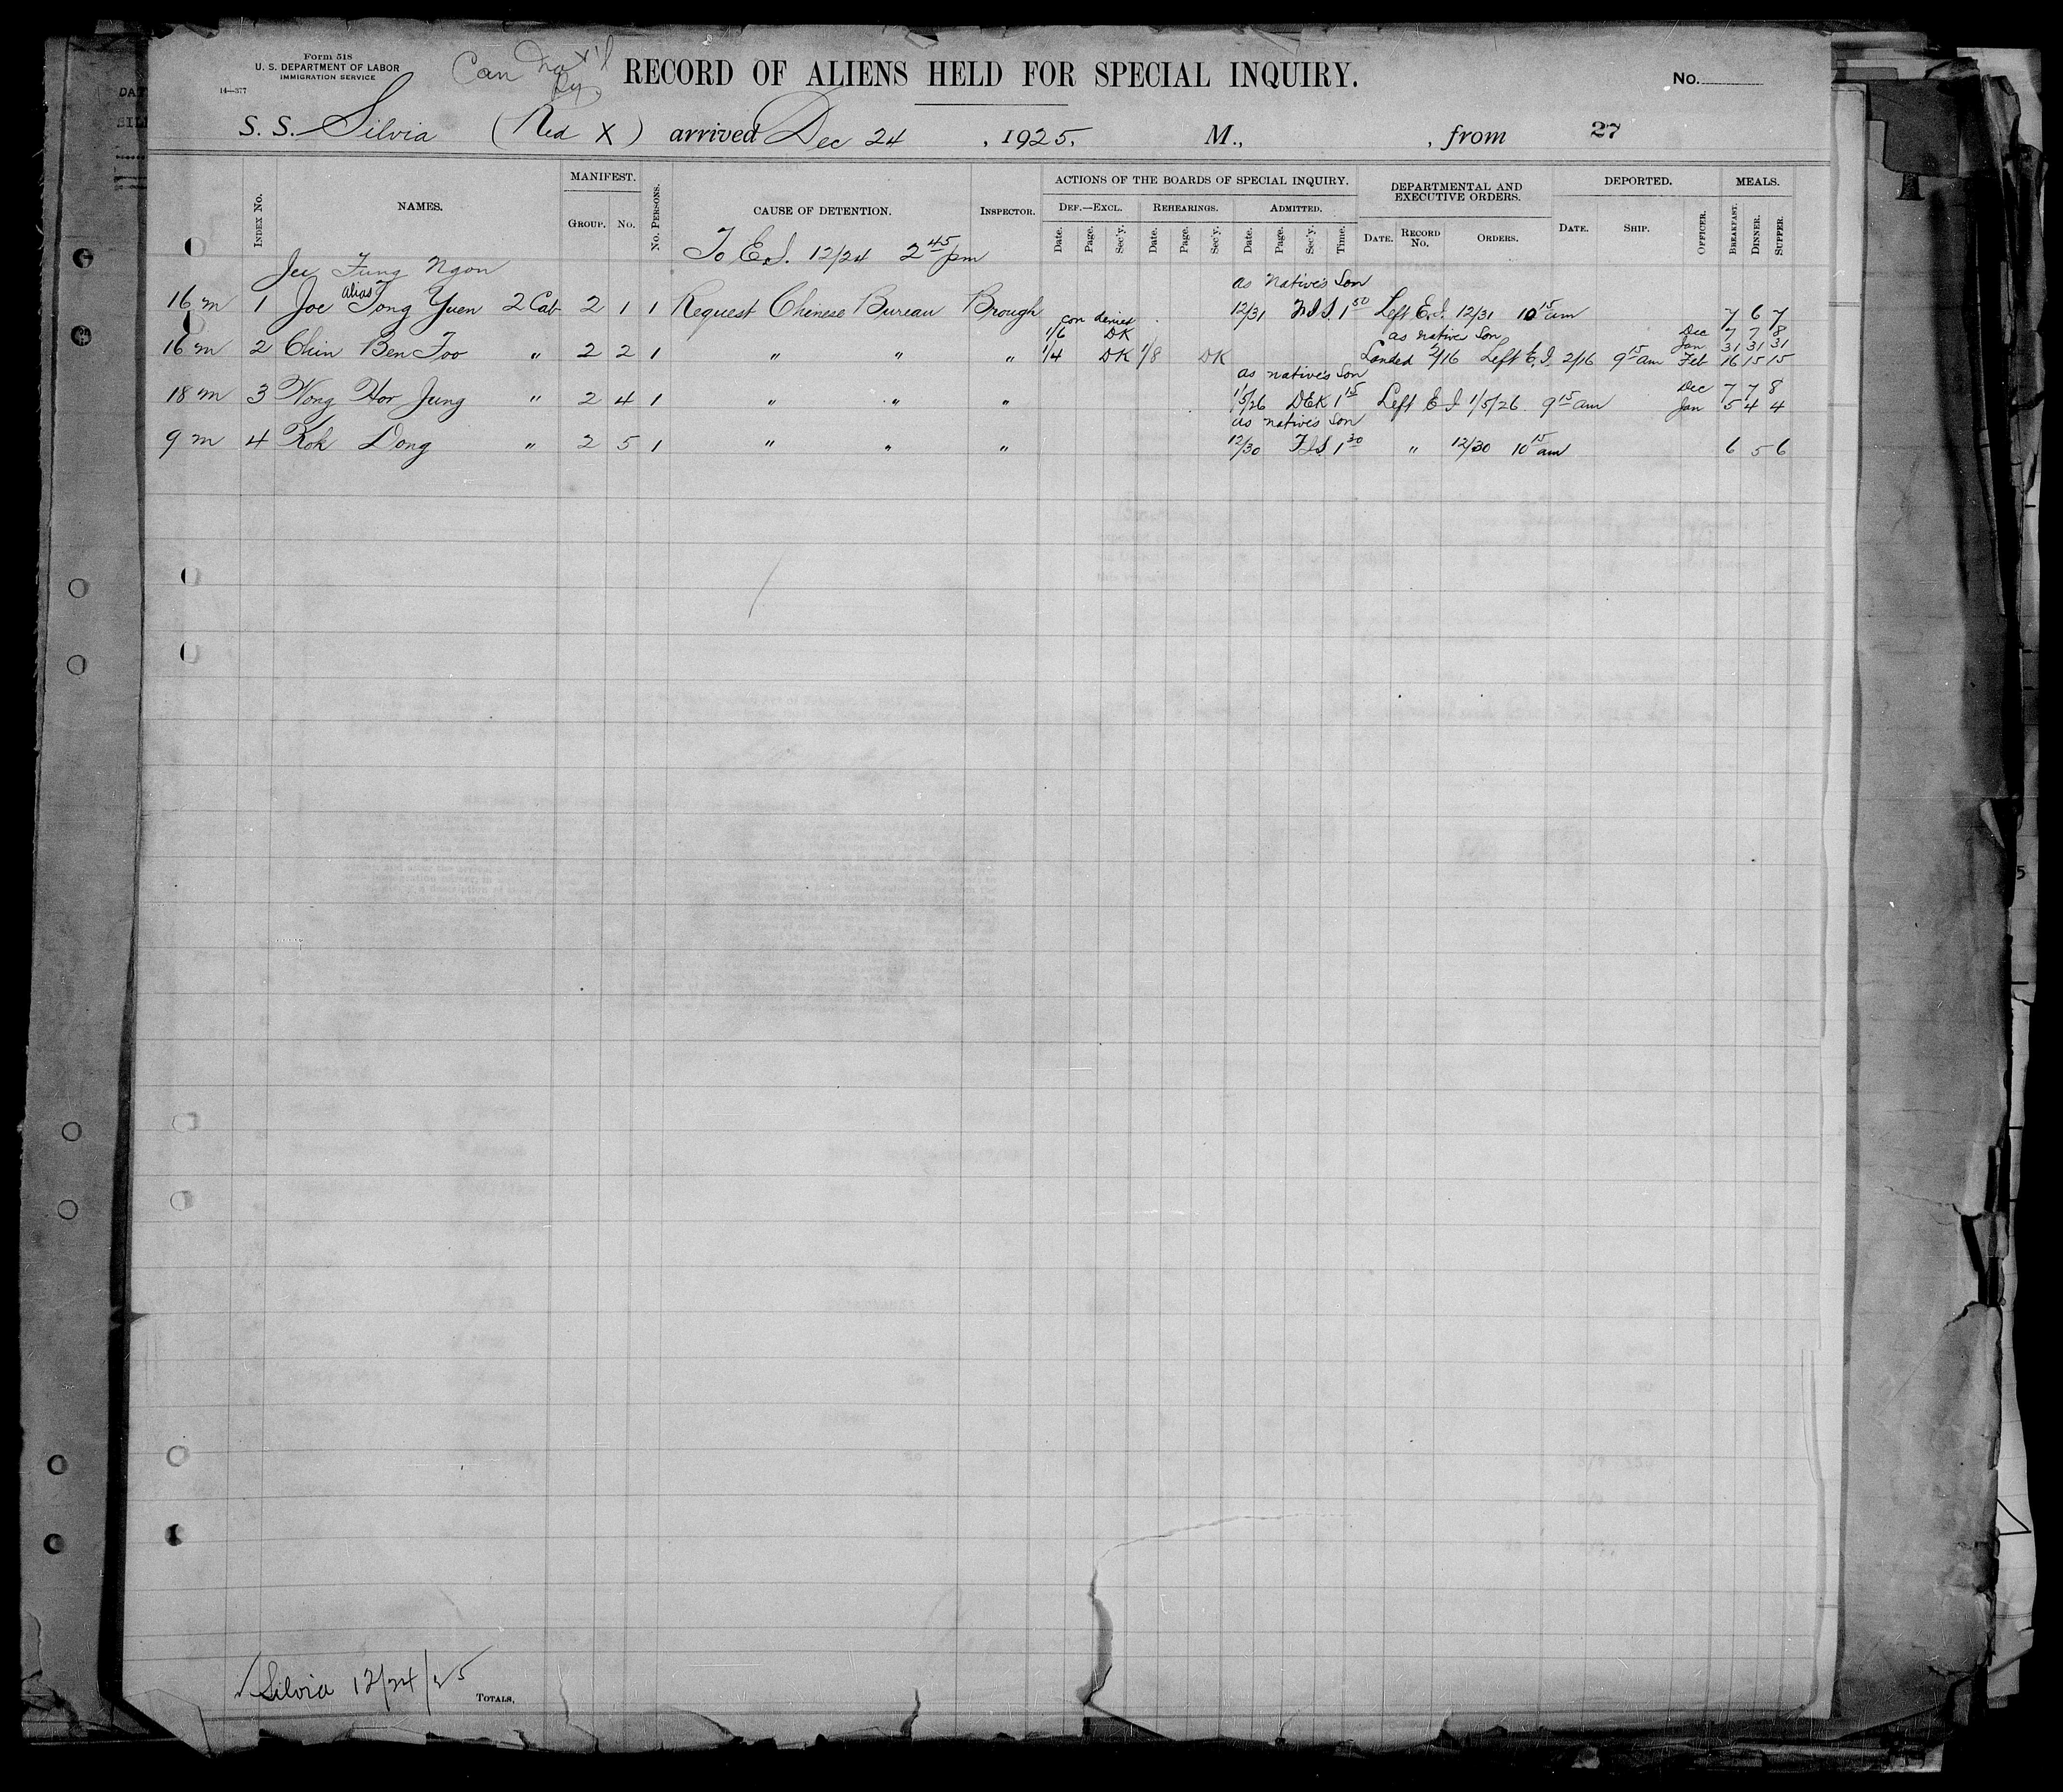 Form 518
U. S. DEPARTMENT OF LABOR
IMMIGRATION SERVICE
14—377
Can Nat'l Ry.
RECORD OF ALIENS HELD FOR SPECIAL INQUIRY.
No.
S. S. Silvia (Red X) arrived Dec 24, 1925, M., , from 27
INDEX No. NAMES. MANIFEST. GROUP. No. No. PERSONS. CAUSE OF DETENTION. INSPECTOR. ACTIONS OF THE BOARDS OF SPECIAL INQUIRY. DEF.—EXCL. Date. Page. Sec'y. REHEARINGS. Date. Page. Sec'y. ADMITTED. Date. Page. Sec'y. Time. DEPARTMENTAL AND EXECUTIVE ORDERS. DATE. RECORD No. ORDERS. DEPORTED. DATE. SHIP. OFFICER. MEALS. BREAKFAST. DINNER. SUPPER.
To E.I. 12/24 2 45 pm
Jee Fung Ngon as native's son
16 m 1 Joe alias Tong Yuen 2 Cab 2 1 1 Request Chinese Bureau Brough 12/31 1 50 Left E.I. 12/31 10 15 am 7 6 7
con denied
1/6 DK as native son Dec 7 7 8
Jan 31 31 31
16 m 2 Chin Ben Foo " 2 2 1 " " " 1/4 DK 1/8 DK Landed 2/16 Left E.I. 2/16 9 15 am Feb 16 15 15
as native's son Dec 7 7 8
18 m 3 Wong Hor Jung " 2 4 1 " " " 1/5/26 DEK 1 15 Left E I 1/5/26 9 15 am Jan 5 4 4
as native's son
9 m 4 Kok Dong " 2 5 1 " " " 12/30 1 30 " 12/30 10 15 am 6 5 6
√ Silvia 12/24/25
TOTALS,